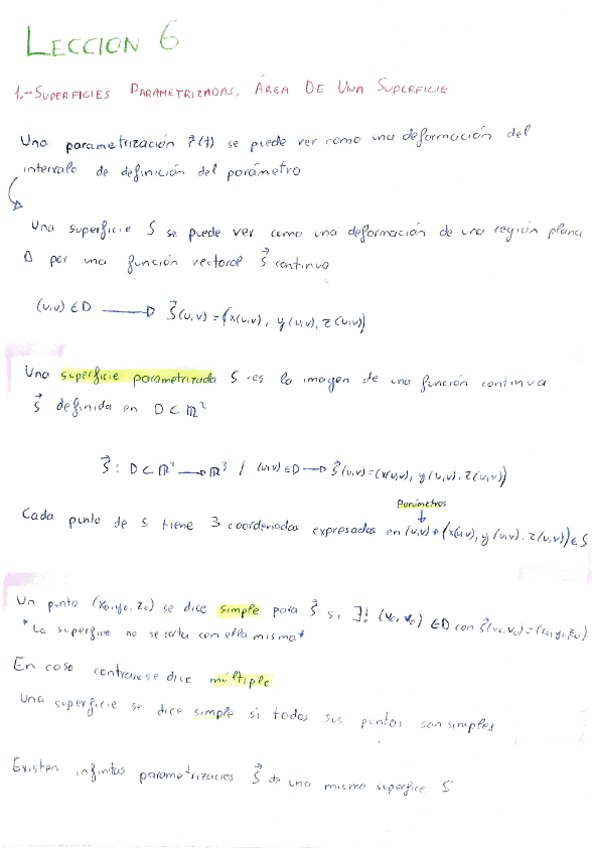 LECCION 6
1.-SUPERFICIES PARAMETRIZADAS. ÁREA DE UNA SUPERFICIE
Una parametrización r⃗(t) se puede ver como una deformación del
intervalo de definición del parámetro
Una superficie S se puede ver como una deformación de una región plana
D por una función vectorial S⃗ continua
(u,v) ∈ D → S⃗(u,v) = (x(u,v), y(u,v), z(u,v))
Una superficie parametrizada S es la imagen de una función continua
S⃗ definida en D ⊂ ℝ²
S⃗ : D ⊂ ℝ² → ℝ³ / (u,v) ∈ D → S⃗(u,v) = (x(u,v), y(u,v), z(u,v))
Parámetros
Cada punto de S tiene 3 coordenadas expresadas en (u,v) (x(u,v), y(u,v), z(u,v)) ∈ S
Un punto (x₀,y₀,z₀) se dice simple para S⃗ si ∃! (u₀,v₀) ∈ D con S⃗(u₀,v₀) = (x₀,y₀,z₀)
*La superficie no se corta con ella misma*
En caso contrario se dice múltiple
Una superficie se dice simple si todos sus puntos son simples
Existen infinitas S⃗ de una misma S